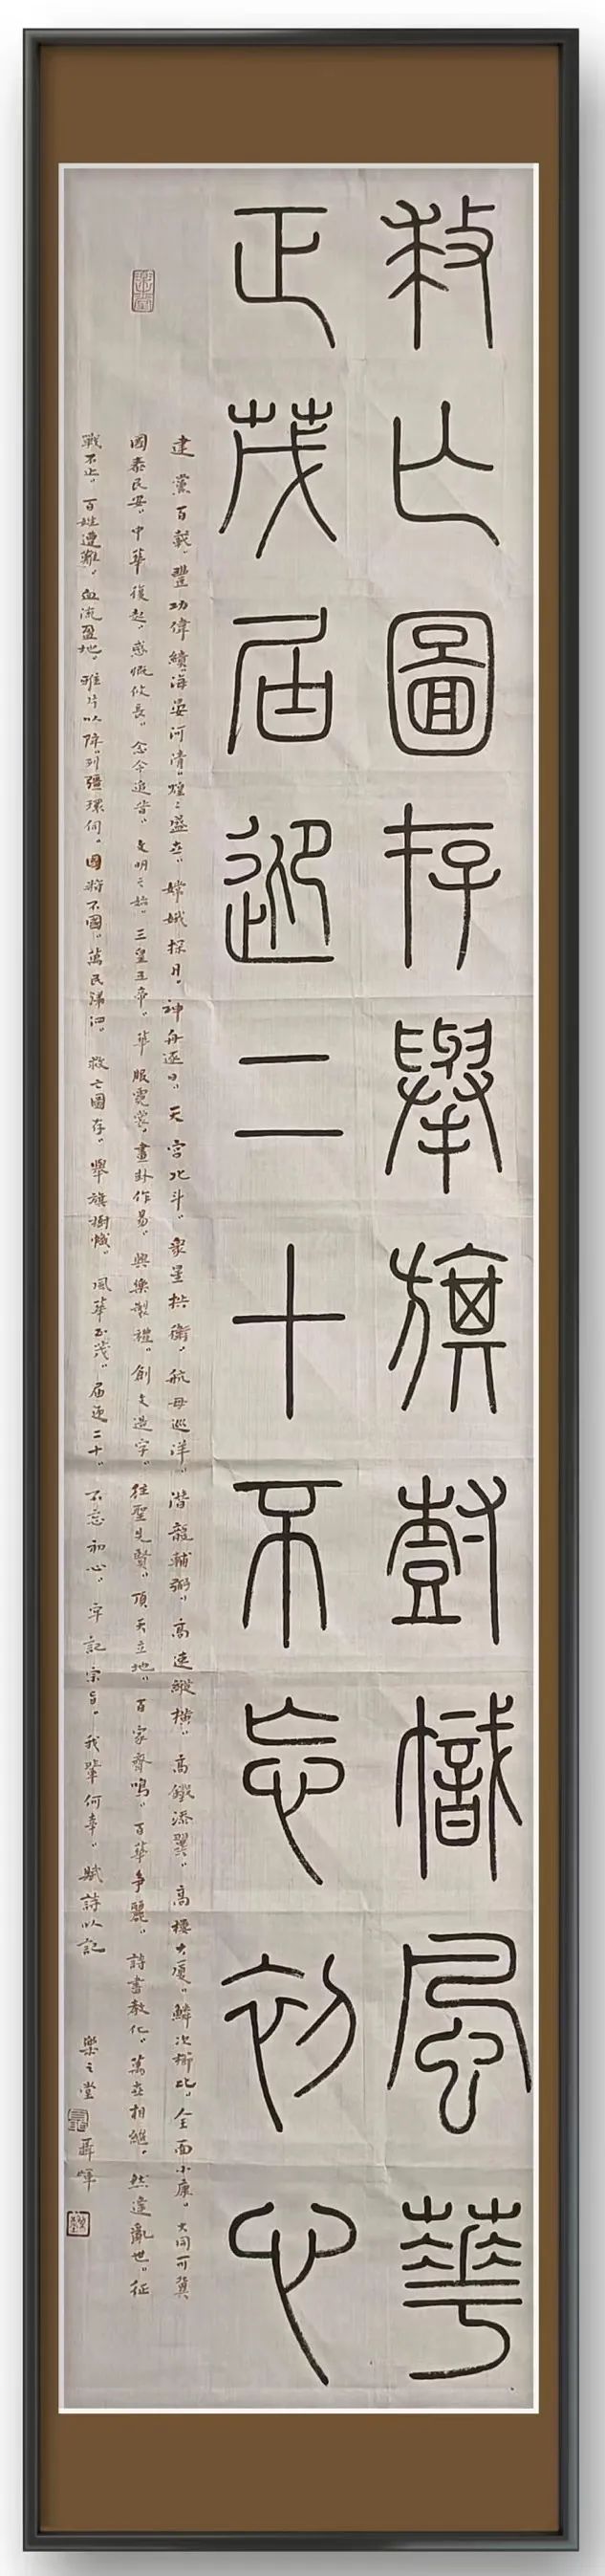 救亡圖存舉旗樹幟風華
正茂屆迎二十不忘初心
建黨百載豐功偉績海晏河清煌〻盛世嫦娥探月神舟逐日天宮北斗眾星拱衛航母巡洋潛龍輔弼高速縱橫高鐵添翼高樓大廈鱗次櫛比全面小康大同可冀
國泰民安中華復起感慨攸長念今追昔文明之始三皇五帝華服霓裳畫卦作易興樂製禮創文造字往聖先賢頂天立地百家齊鳴百華爭麗詩書教化萬世相繼然逢亂世征
戰不止百姓遭難血流盈地雅片以降列疆環伺國將不國萬民涕泗救亡圖存舉旗樹幟風華正茂屆迎二十不忘初心牢記宗旨我輩何幸賦詩以記
樂之堂
聶暉